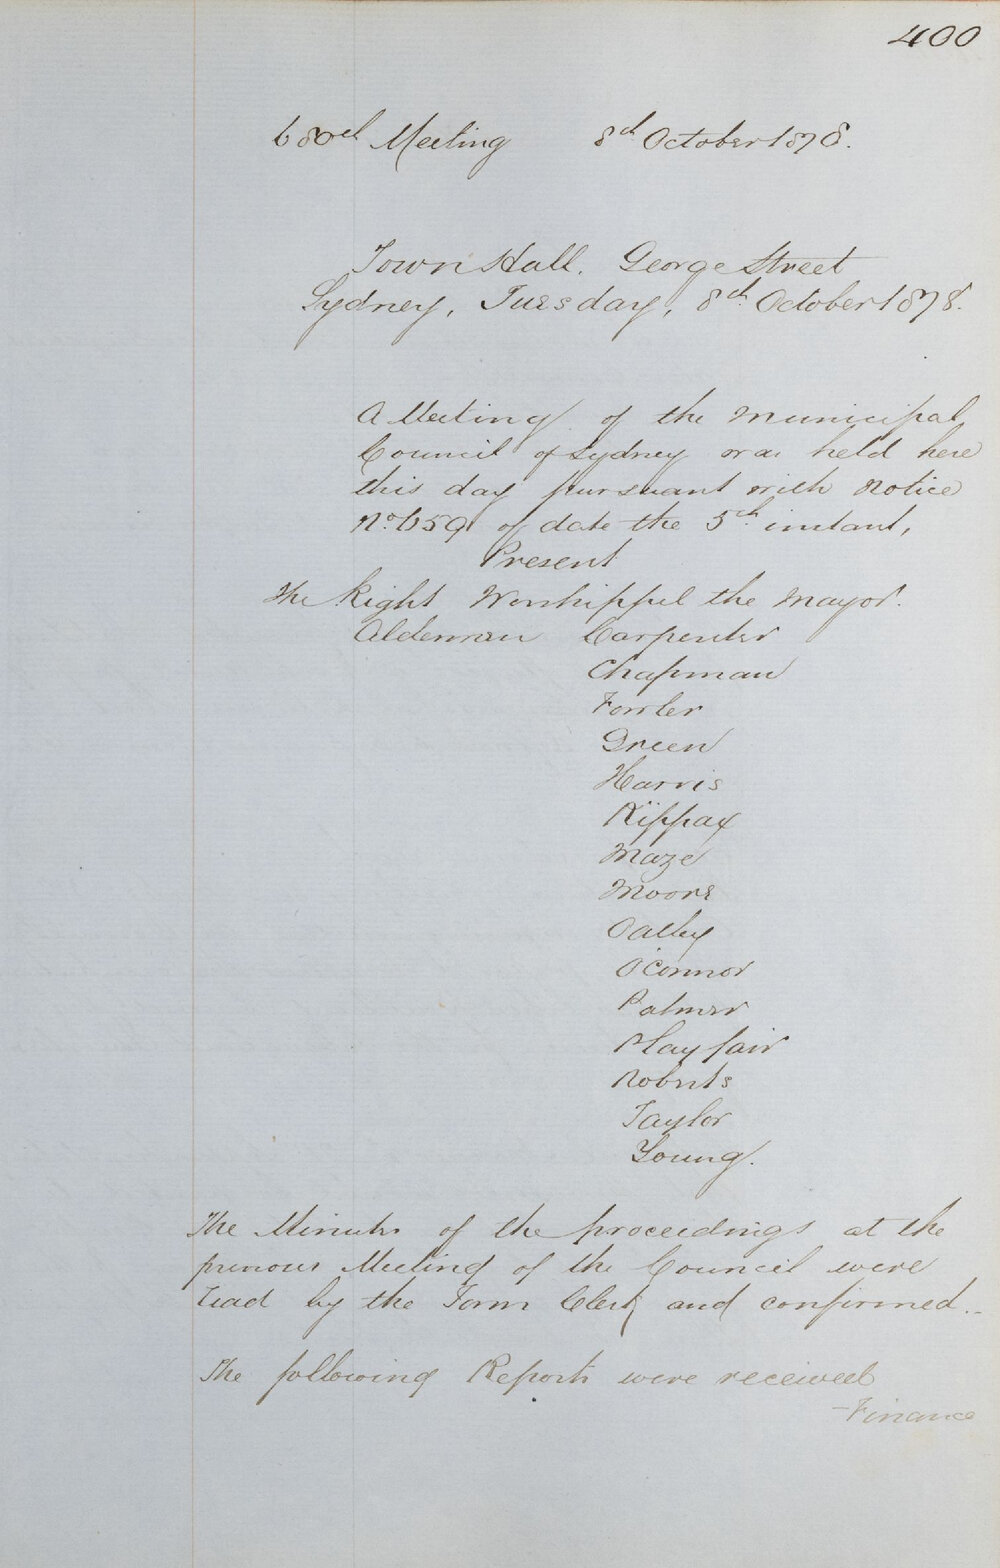 400
680th Meeting 8th October 1878.
Town Hall. George Street
Sydney, Tuesday, 8th October 1878.
A Meeting of the Municipal
Council of Sydney was held here
this day pursuant with Notice
No. 659 of date the 5th instant,
Present
The Right Worshipful the Mayor.
Alderman Carpenter
Chapman
Fowler
Green
Harris
Kippax
Maze
Moore
Oatley
O'Connor
Palmer
Playfair
Roberts
Taylor
Young.
The Minutes of the proceedings at the
previous Meeting of the Council were
read by the Town Clerk and confirmed.
The following Reports were received
Finance